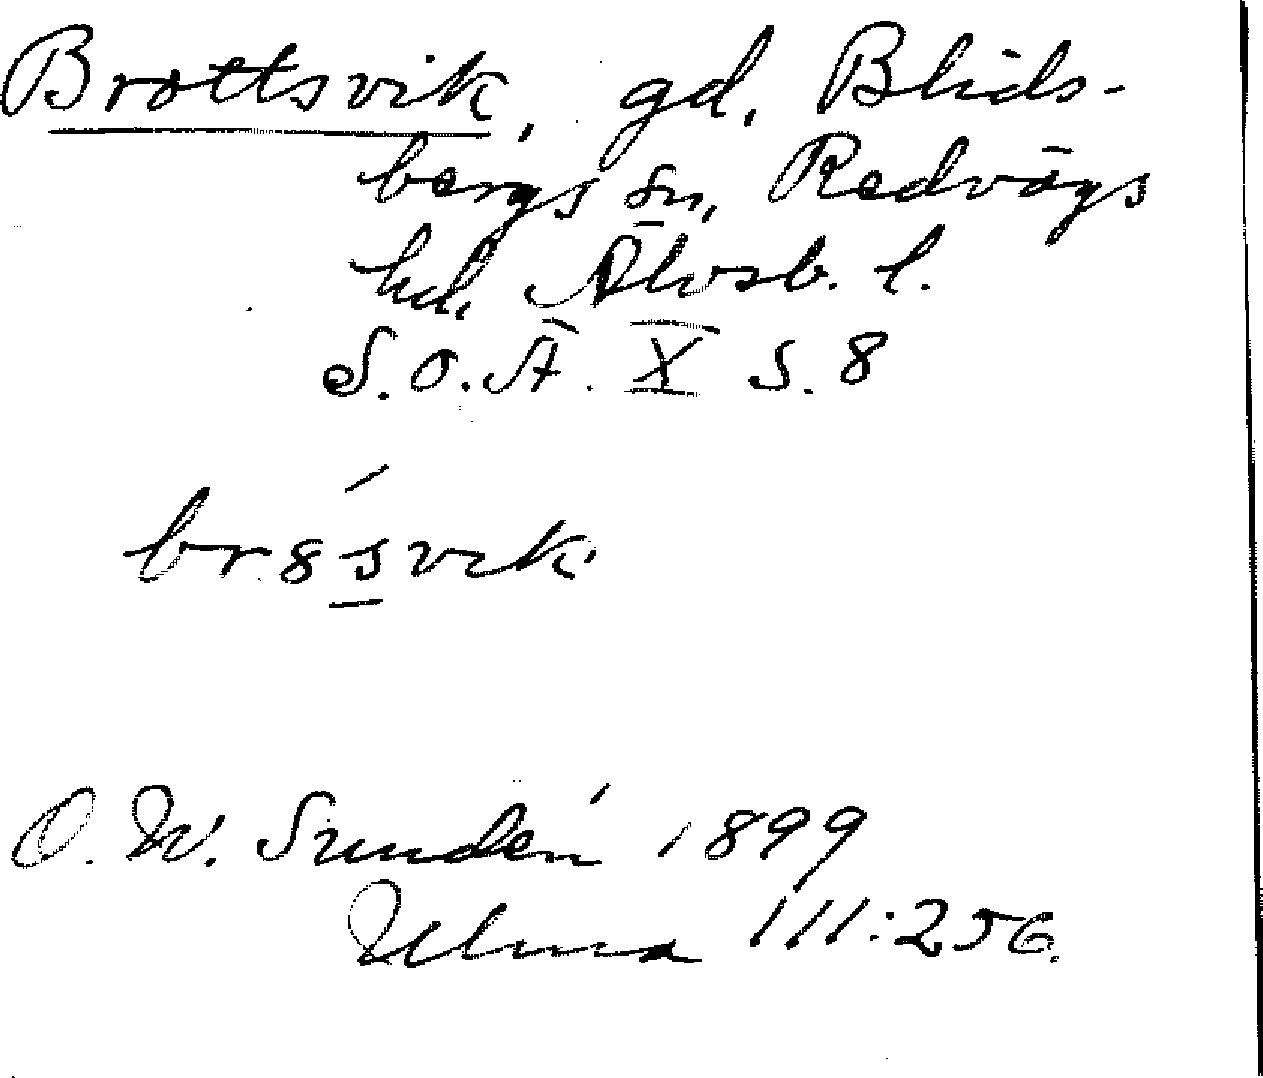 Brottsvik, gd, Blids-
bergs sn, Redvägs
hd, Älvsb. l.
S.O.Ä. X s. 8
br8́svik
O. W. Sundén 1899
Ulma 111:256.